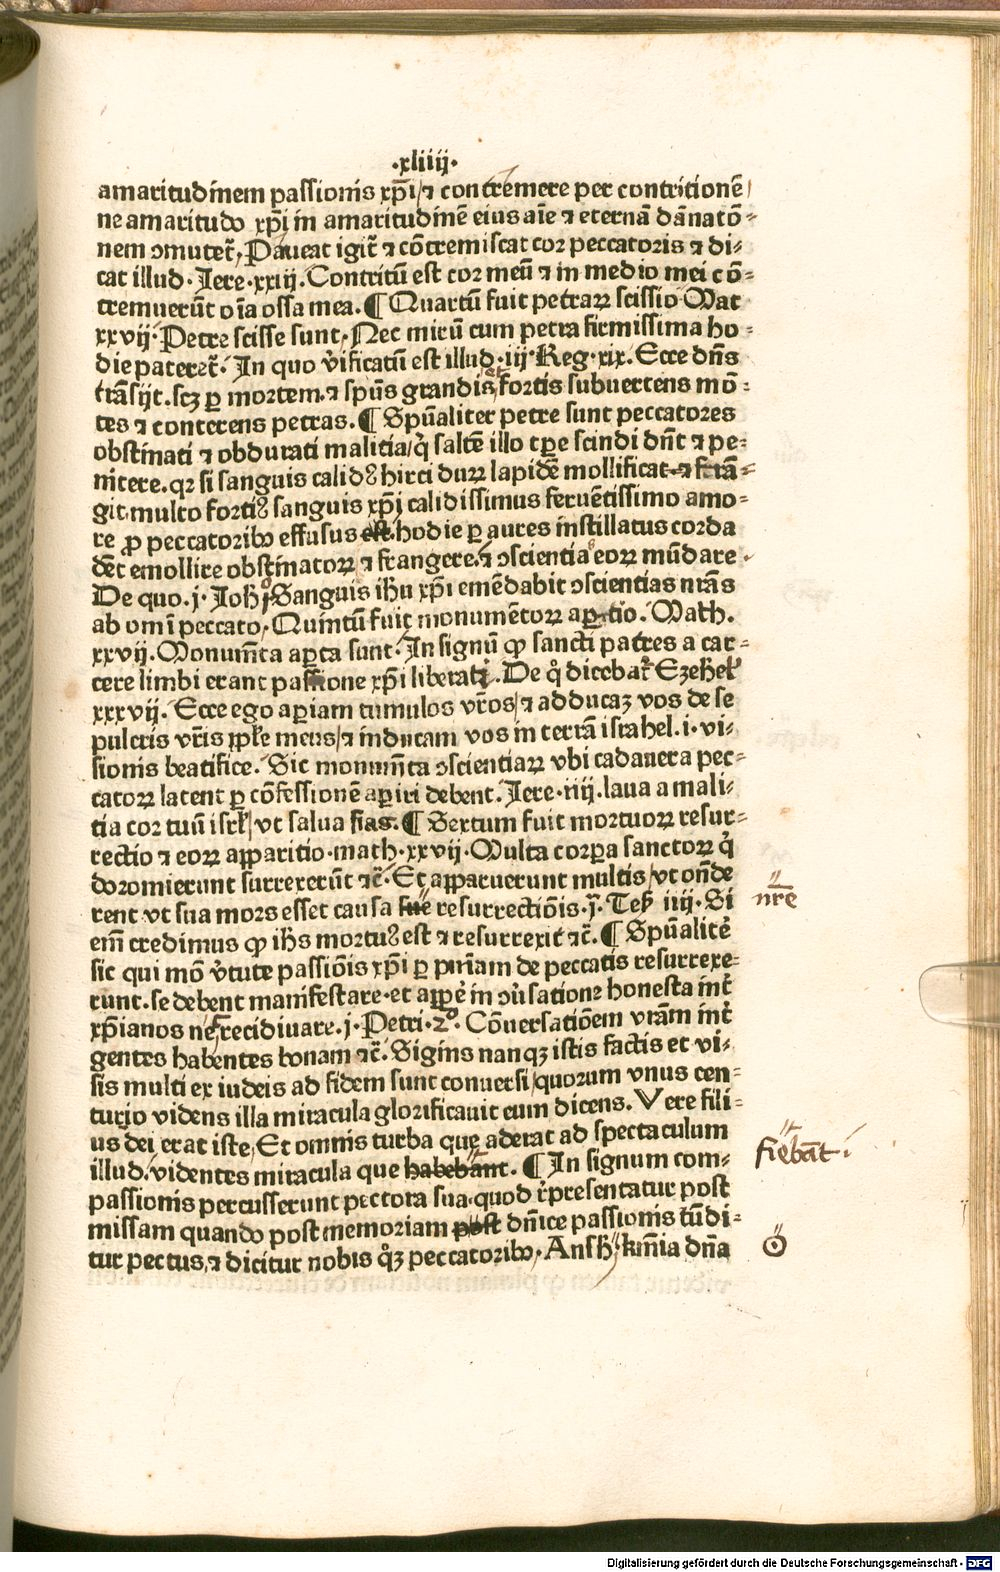 ·xliiij·
amaritudinem passionis xp̄i/ ⁊ contremere per contritionē/
ne amaritudo xp̄i in amaritudinē eius aīe ⁊ eternā dānatō-
nem ↄmutet̄, Paueat igit̄ ⁊ cōtremiscat cor peccatoris ⁊ di-
cat illud· Iere·xxiij. Contritū est cor meū ⁊ in medio mei cō-
tremuerūt oīa ossa mea. ¶ Quartū fuit petraꝝ scissio Mat
xxvij· Petre scisse sunt· Nec mirū cum petra firmissima ho-
die pateret̄. In quo v̄ificatū est illud·iij·Reg·xix. Ecce dn̄s
trāsijt. scꝫ ꝑ mortem ⁊ spūs grandis et fortis subuertens mō-
tes ⁊ conterens petras. ¶ Spūaliter petre sunt peccatores
obstinati ⁊ obdurati malitia/ q̇ saltē illo tꝑe scindi dn̄t ⁊ pe-
nitere. qꝛ si sanguis calidꝰ hirci duꝝ lapidē mollificat ⁊ frā-
git. multo fortiꝰ sanguis xp̄i calidissimus feruētissimo amo-
re ꝓ peccatoribꝰ effusus est. hodie ꝑ aures instillatus corda
dꝫt emollire obstinatoꝝ ⁊ frangere, ⁊ ↄscientia eoꝝ mūdare.
De quo. j· Ioh̄ j· Sanguis ih̄u xp̄i emēdabit ↄscientias nr̄as
ab omī peccato, Quintū fuit monumētoꝝ aꝑtio. Math.
xxvij. Monum̄ta aꝑta sunt. In signū ꝙ sancti patres a car-
cere limbi erant passione xp̄i liberati. De q̊ dicebat̄ Ezehel̄
xxxvij. Ecce ego aꝑiam tumulos vr̄os/ ⁊ adducaꝫ vos de se
pulcris vr̄is ppl̄e meus/ ⁊ inducam vos in terrā israhel. i· vi-
sionis beatifice. Sic monum̄ta ↄscientiaꝝ vbi cadauera pec-
catoꝝ latent ꝑ cōfessionē aꝑiri debent. Iere·iiij. laua a mali-
tia cor tuū isrl̄/ vt salua fias. ¶ Sextum fuit mortuoꝝ resur-
rectio ⁊ eoꝝ apparitio·math·xxvij·Multa corꝑa sanctoꝝ q̇
doromierunt surrexerūt ⁊c̄. Et apparuerunt multis/ vt onde
rent vt sua mors esset causa sue resurrectiōis. j· Tess iiij· Si
em̄ credimus ꝙ ih̄s mortuꝰ est ⁊ resurrexit ⁊c̄. ¶ Spūalit̄
sic qui mō v̄tute passiōis xp̄i ꝑ pn̄iam de peccatis resurrexe-
runt. se debent manifestare·et appe̍ in ↄu̍satione honesta int̄
xp̄ianos ne recidiuare. j· Petri·2º· Cōuersatiōem vr̄am int̄
gentes habentes bonam ⁊c̄. Sigins nanqꝫ istis factis et vi-
sis multi ex iudeis ad fidem sunt conuersi/ quorum vnus cen-
turio videns illa miracula glorificauit eum dicens. Vere fili-
us dei erat iste, Et omnis turba que aderat ad spectaculum
illud. videntes miracula que habebant. ¶ In signum com-
passionis percusserunt pectora sua·quod r̄presentatur post
missam quando post memoriam post dn̄ice passionis tūdi-
tur pectus, ⁊ dicitur nobis q̊ꝫ peccatoribꝰ, Ansh̄. Oīa dn̄a
nr̄e
fiebāt.
Digitalisierung gefördert durch die Deutsche Forschungsgemeinschaft - DFG